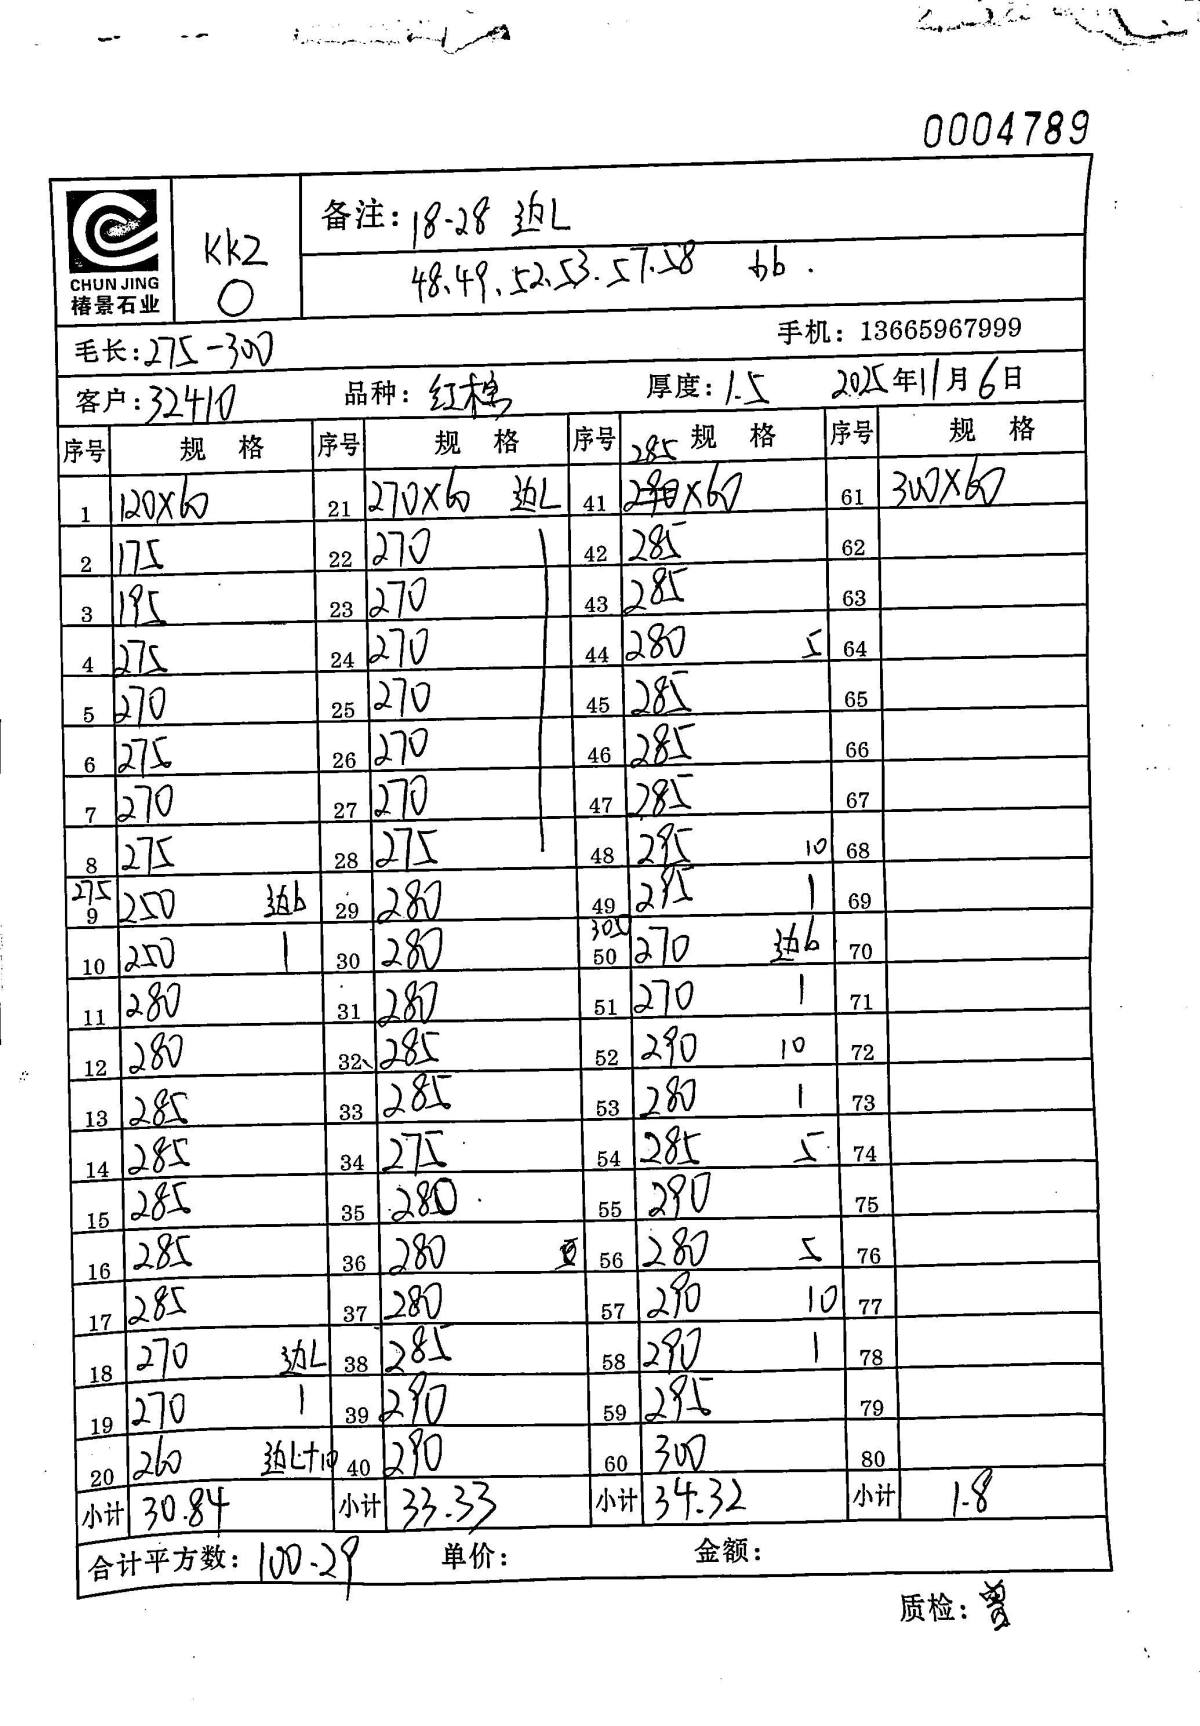 0004789
CHUN JING
椿景石业
KKZ
0
备注: 18-28 边L
48、49、52、53、57、58 bb.
毛长: 275-300
手机: 13665967999
客户: 32410 品种: 红棉 厚度: 1.5 2025年11月6日
序号 规格 序号 规格 序号 规格 序号 规格
285
1 120×60 21 270×60 边L 41 290×60 61 300×60
2 175 22 270 | 42 285 62
3 195 23 270 43 285 63
4 275 24 270 44 280 5 64
5 270 25 270 45 285 65
6 275 26 270 46 285 66
7 270 27 270 47 285 67
8 275 28 275 48 295 10 68
275
9 250 边b 29 280 49 295 1 69
305
10 250 1 30 280 50 270 边b 70
11 280 31 280 51 270 1 71
12 280 32、 285 52 290 10 72
13 285 33 285 53 280 1 73
14 285 34 275 54 285 5 74
15 285 35 280 55 290 75
16 285 36 280 56 280 5 76
17 285 37 280 57 290 10 77
18 270 边L 38 285 58 290 1 78
19 270 1 39 290 59 295 79
20 260 边L+10 40 290 60 300 80
小计 30.84 小计 33.33 小计 34.32 小计 1.8
合计平方数: 100.29 单价: 金额:
质检: 曾